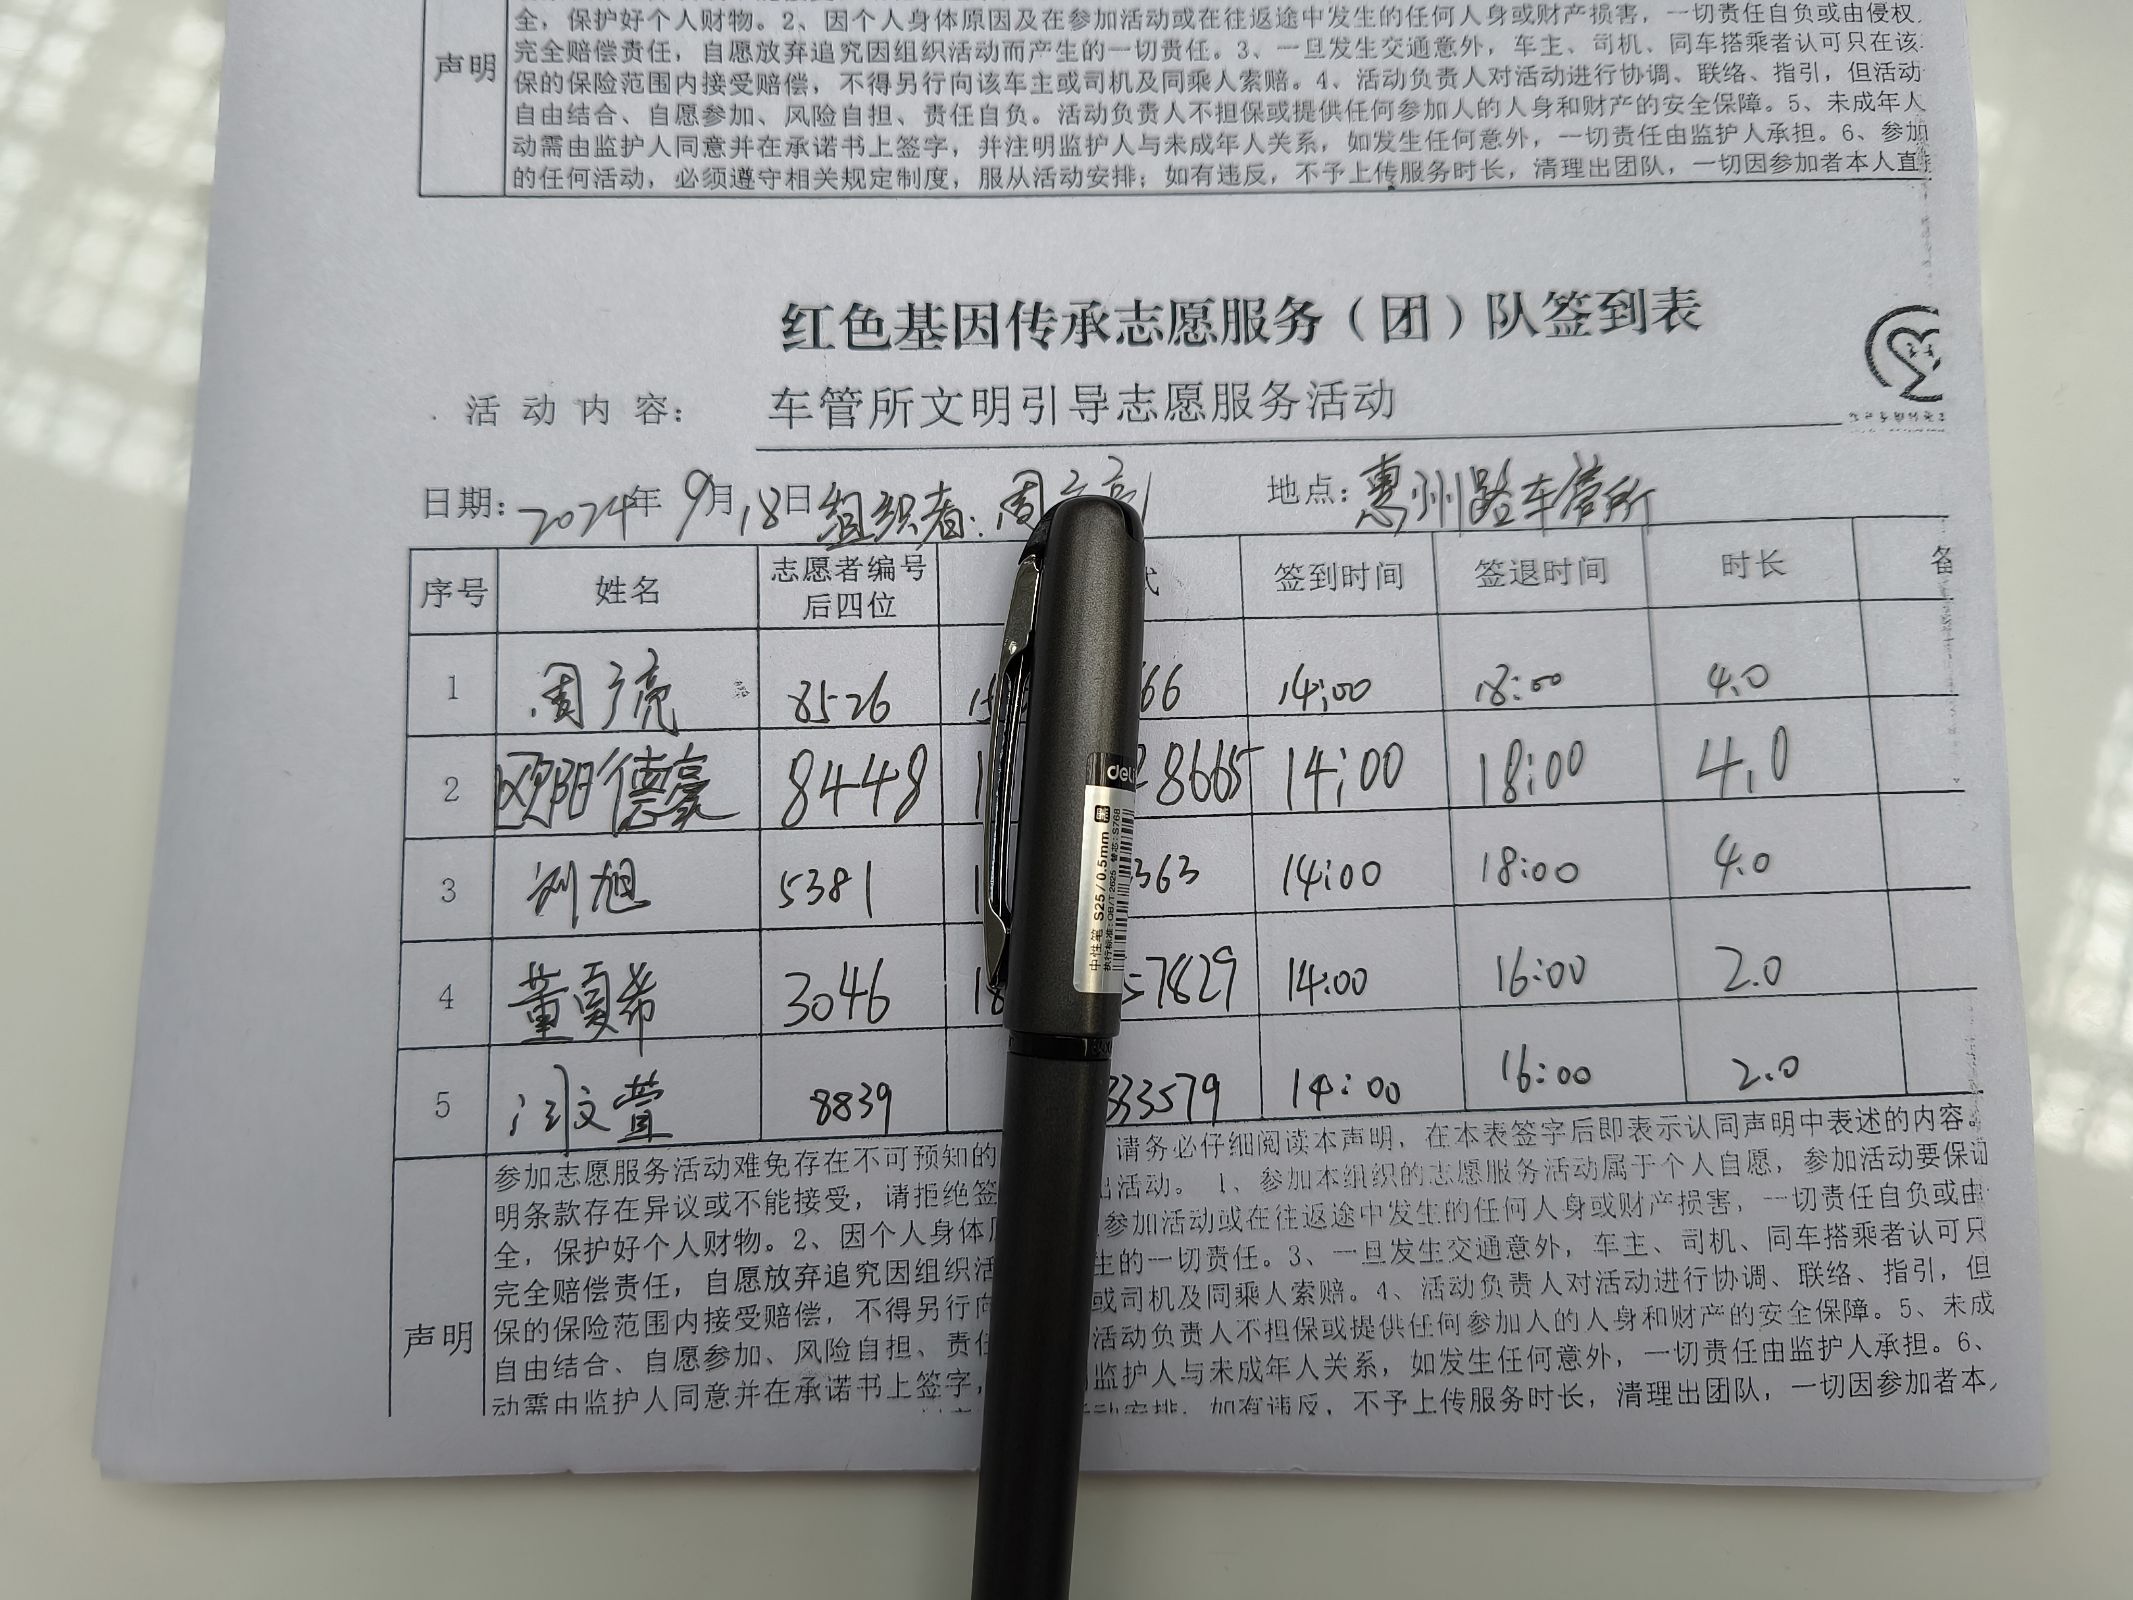 全，保护好个人财物。2、因个人身体原因及在参加活动或在往返途中发生的任何人身或财产损害，一切责任自负或由侵权
声明
完全赔偿责任，自愿放弃追究因组织活动而产生的一切责任。3、一旦发生交通意外，车主、司机、同车搭乘者认可只在该
保的保险范围内接受赔偿，不得另行向该车主或司机及同乘人索赔。4、活动负责人对活动进行协调、联络、指引，但活动
自由结合、自愿参加、风险自担、责任自负。活动负责人不担保或提供任何参加人的人身和财产的安全保障。5、未成年人
动需由监护人同意并在承诺书上签字，并注明监护人与未成年人关系，如发生任何意外，一切责任由监护人承担。6、参加
的任何活动，必须遵守相关规定制度，服从活动安排；如有违反，不予上传服务时长，清理出团队，一切因参加者本人直
红色基因传承志愿服务（团）队签到表
活动内容： 车管所文明引导志愿服务活动
日期：2024年 9月18日 组织者：周广亮 地点：惠州路车管所
序号 姓名 志愿者编号后四位 式 签到时间 签退时间 时长 备
1 周广亮 8526 15 66 14:00 18:00 4.0
2 欧阳德豪 8448 1 8665 14:00 18:00 4.0
3 刘旭 5381 1 363 14:00 18:00 4.0
4 董夏希 3046 18 57829 14:00 16:00 2.0
5 汪文萱 8839 333579 14:00 16:00 2.0
声明
参加志愿服务活动难免存在不可预知的 请务必仔细阅读本声明，在本表签字后即表示认同声明中表述的内容。
明条款存在异议或不能接受，请拒绝签 出活动。 1、参加本组织的志愿服务活动属于个人自愿，参加活动要保证
全，保护好个人财物。2、因个人身体原 参加活动或在往返途中发生的任何人身或财产损害，一切责任自负或由
完全赔偿责任，自愿放弃追究因组织活 生的一切责任。3、一旦发生交通意外，车主、司机、同车搭乘者认可只
保的保险范围内接受赔偿，不得另行向 或司机及同乘人索赔。4、活动负责人对活动进行协调、联络、指引，但
自由结合、自愿参加、风险自担、责任 活动负责人不担保或提供任何参加人的人身和财产的安全保障。5、未成
动需由监护人同意并在承诺书上签字， 监护人与未成年人关系，如发生任何意外，一切责任由监护人承担。6、
动安排；如有违反，不予上传服务时长，清理出团队，一切因参加者本
deli
中性笔 S25/0.5mm 黑
执行标准：QB/T 2625 替芯：S768